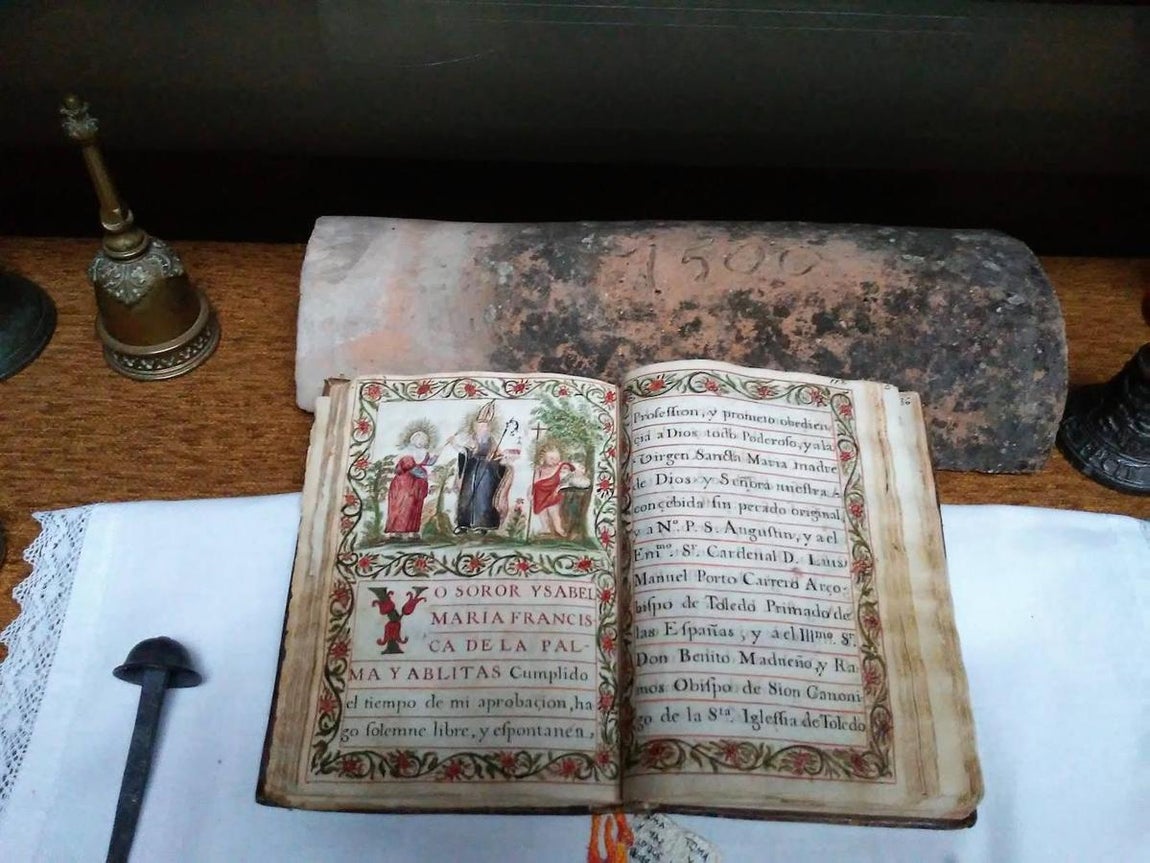 1500
YO SOROR YSABEL
MARIA FRANCIS
CA DE LA PAL-
MA Y ABLITAS Cumplido
el tiempo de mi aprobaçion, ha
go solemne libre, y espontanea,
36
Profession, y prometo obedien
çia a Dios todo Poderoso, y a la
Virgen Sancta Maria madre
de Dios y Señora nuestra
conçebida sin pecado original,
y a Nº. P. S. Augustin, y a el
Emmº. Sr. Cardenal D. Luis
Manuel Porto Carrero Arço-
bispo de Toledo Primado de
las Españas, y a el Illmo. Sr.
Don Benito Madueño, y Ra-
mos Obispo de Sion Canoni-
go de la Sta. Iglessia de Toledo